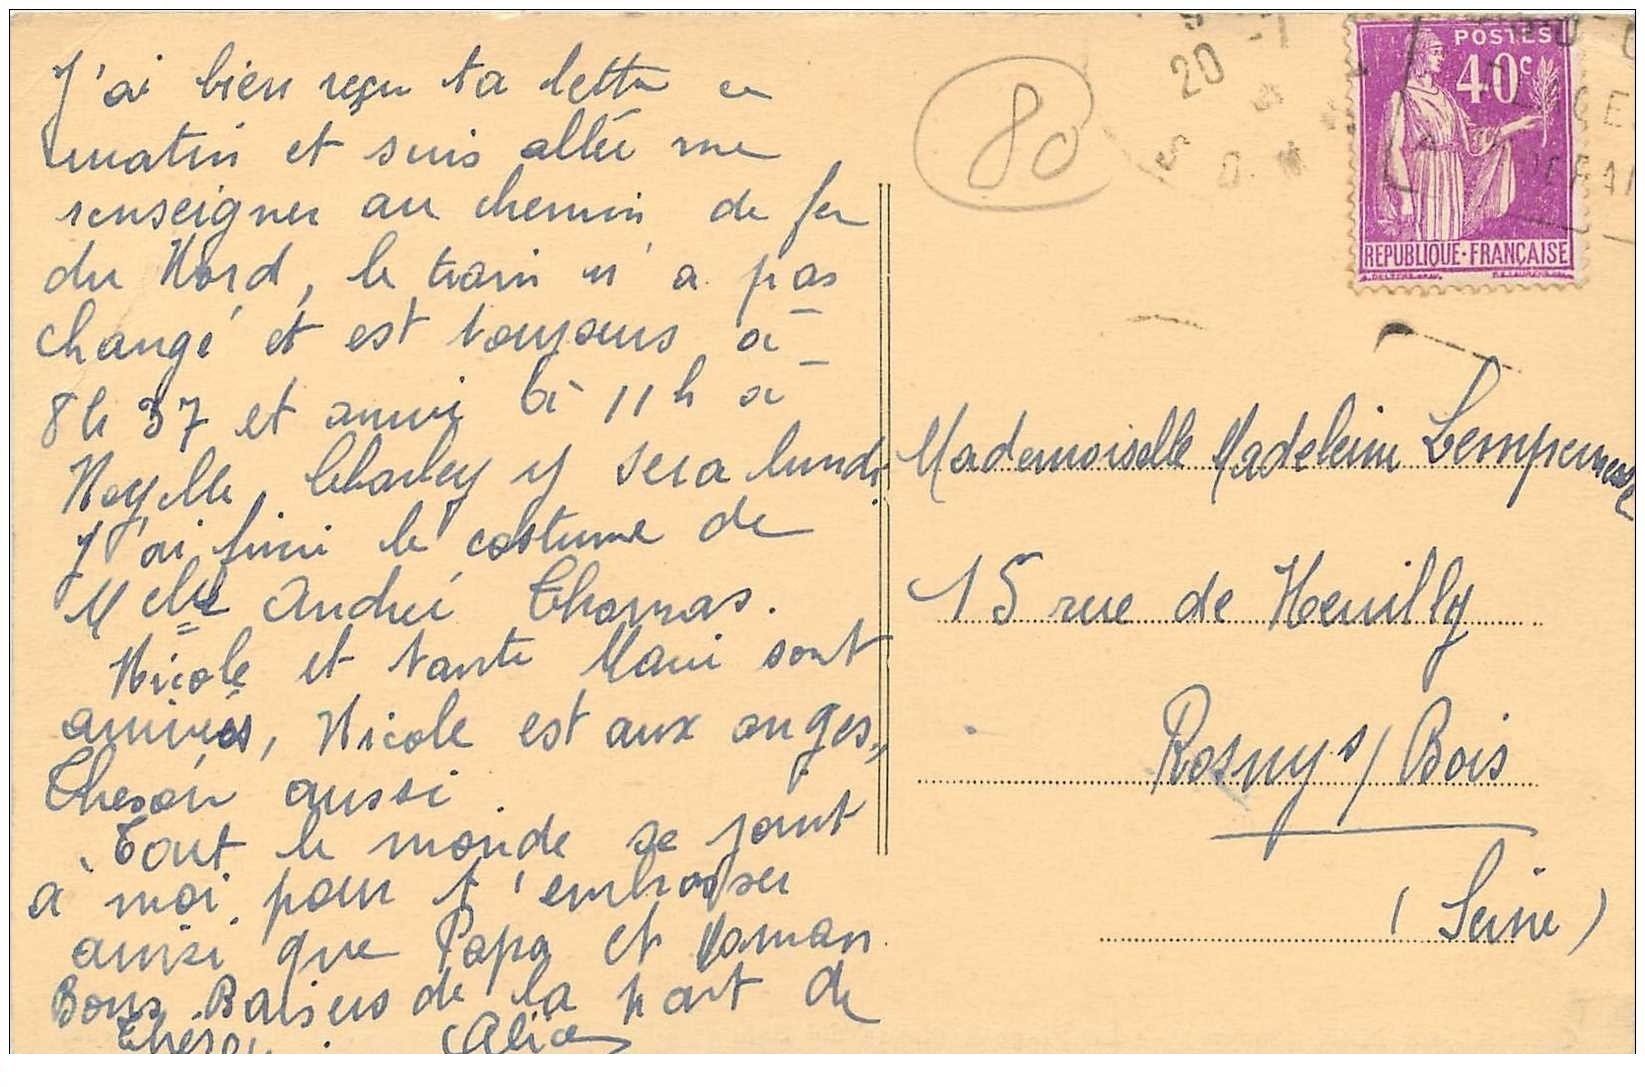 J'ai bien reçu ta lettre ce
matin et suis allée me
renseigner au chemin de fer
du Nord, le train n'a pas
changé et est toujours à
8h 37 et arrive à 11h à
Noyelle, Charley y sera lundi.
J'ai fini le costume de
Melle André Thomas.
Nicole et tante Marie sont
arrivées, Nicole est aux anges,
aussi.
Tout le monde se joint
à moi pour t'embrasser
ainsi que Papa et Maman.
Bons Baisers de la part de
Alice
80
20 -7
POSTES
40c
REPUBLIQUE·FRANÇAISE
Mademoiselle Madeleine
15 rue de Neuilly
Rosny s/ Bois
(Seine)